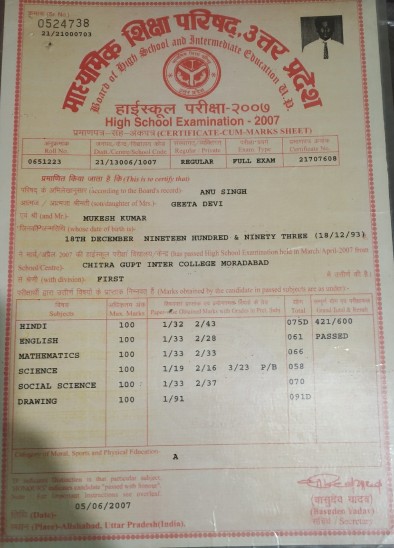 क्रमांक (Sr. No.)
0524738
21/21000703
माध्यमिक शिक्षा परिषद्, उत्तर प्रदेश
Board of High School and Intermediate Education U.P.
हाईस्कूल परीक्षा-२००७
High School Examination - 2007
प्रमाणपत्र-सह-अंकपत्र (CERTIFICATE-CUM-MARKS SHEET)
अनुक्रमांक
Roll No. Distt./Centre/School Code Regular / Private Exam. Type Certificate No.
0651223 21/13006/1007 REGULAR FULL EXAM 21707608
प्रमाणित किया जाता है कि (This is to certify that)
परिषद् के अभिलेखानुसार (according to the Board's record) ANU SINGH
आत्मज / आत्मजा श्रीमती (son/daughter of Mrs.) GEETA DEVI
एवं श्री (and Mr.) MUKESH KUMAR
(whose date of birth is)
18TH DECEMBER NINETEEN HUNDRED & NINETY THREE (18/12/93)
ने मार्च/अप्रैल 2007 की हाईस्कूल परीक्षा (has passed High School Examination held in March/April-2007 from
School/Centre) CHITRA GUPT INTER COLLEGE MORADABAD
(with division) FIRST में उत्तीर्ण की है।
(Marks obtained by the candidate in passed subjects are as under)-
विषय
Subjects Max. Marks
HINDI 100 1/32 2/43 075D 421/600
ENGLISH 100 1/33 2/28 061 PASSED
MATHEMATICS 100 1/33 2/33 066
SCIENCE 100 1/19 2/16 3/23 P/B 058
SOCIAL SCIENCE 100 1/33 2/37 070
DRAWING 100 1/91 091D
Category of Moral, Sports and Physical Education- A
05/06/2007
(Date)-
(Place)-Allahabad, Uttar Pradesh(India).
(वासुदेव यादव)
(Basudeo Yadav)
सचिव / Secretary